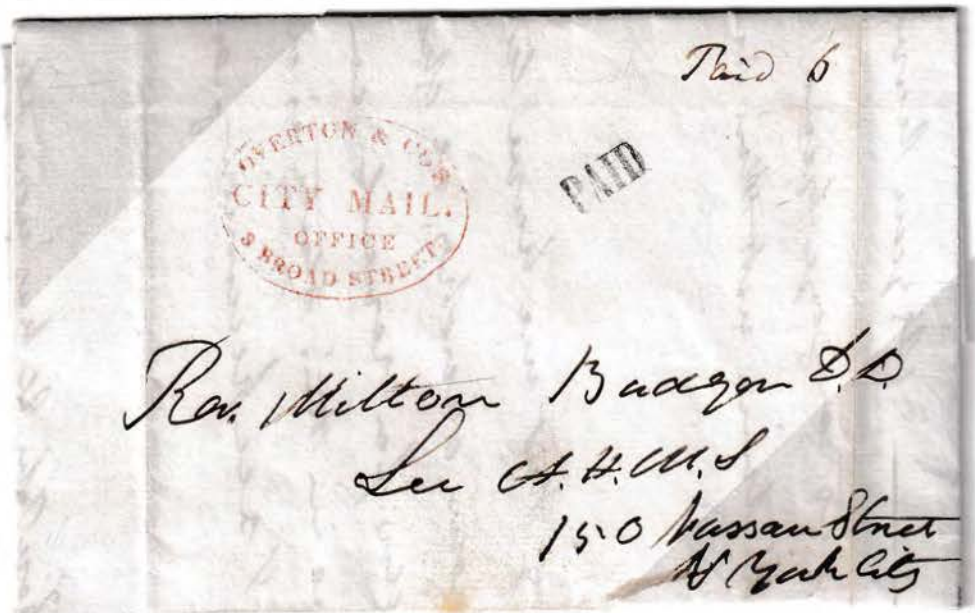 Paid 6
OVERTON & CO'S
CITY MAIL.
OFFICE
3 BROAD STREET
PAID
Rev. Milton Badger D.D.
Sec A. H. M. S
150 Nassau Street
N York City